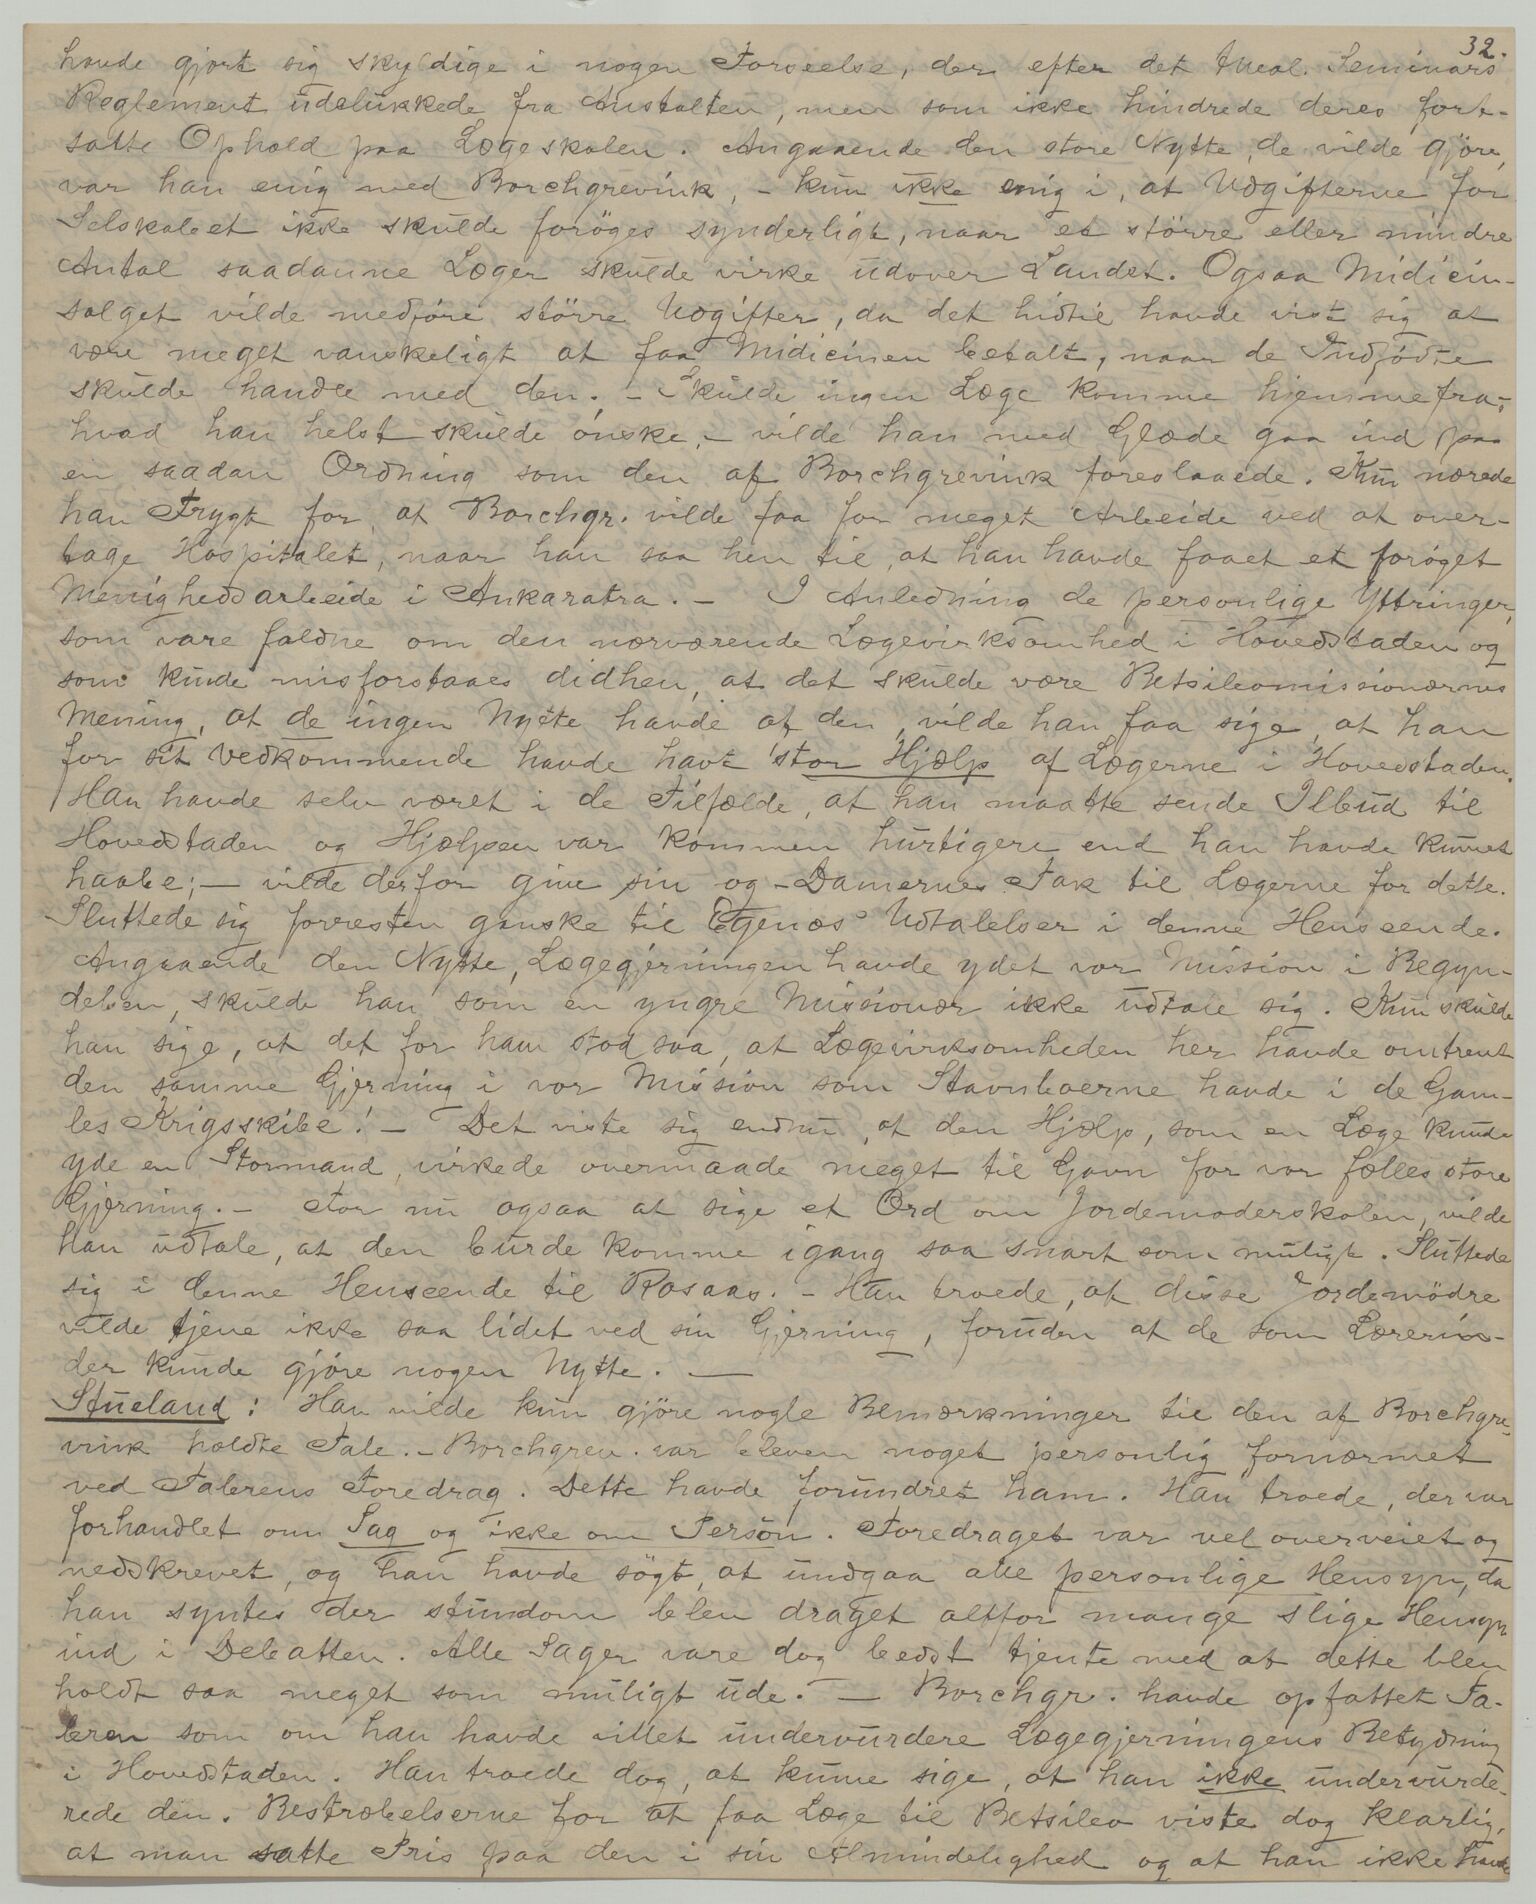 32.
havde gjort sig skyldige i nogen Forseelse, der efter det theol. Seminars
Reglement udelukkede fra Anstalten, men som ikke hindrede deres fort-
satte Ophold paa Lægeskolen. Angaaende den store Nytte, de vilde gjöre,
var han enig med Borchgrevink, - kun ikke enig i, at Udgifterne for
Selskabet ikke skulde foröges synderligt, naar et större eller mindre
Antal saadanne Læger skulde virke udover Landet. Ogsaa Midicin-
salget vilde medföre större Udgifter, da det hidtil havde vist sig at
være meget vanskeligt at faa Midicinen betalt, naar de Indfödte
skulde handle med den. - Skulde ingen Læge komme hjemmefra,
hvad han helst skulde önske, - vilde han med Glæde gaa ind paa
en saadan Ordning som den af Borchgrevink foreslaaede. Kun nærede
han Frygt for, at Borchgr. vilde faa for meget Arbeide ved at over-
tage Hospitalet, naar han saa hen til, at han havde faaet et foröget
Menighedsarbeide i Ankaratra. - I Anledning de personlige Yttringer,
som vare faldne om den nærværende Lægevirksomhed i Hovedstaden og
som kunde misforstaaes didhen, at det skulde være Betsileomissionærnes
Mening, at de ingen Nytte havde af den, vilde han faa sige, at han
for sit Vedkommende havde havt stor Hjælp af Lægerne i Hovedstaden.
Han havde selv været i de Tilfælde, at han maatte sende Ilbud til
Hovedstaden og Hjælpen var kommen hurtigere end han havde kunnet
haabe; - vilde derfor give sin og - Damernes Tak til Lægerne for dette.
Sluttede sig forresten ganske til Egenæs' Udtalelser i denne Henseende.
Angaaende den Nytte, Lægegjerningen havde ydet vor Mission i Begyn-
delsen, skulde han som en yngre Missionær ikke udtale sig. Kun skulde
han sige, at det for ham stod saa, at Lægevirksomheden her havde omtrent
den samme Gjerning i vor Mission som Stavnboerne havde i de Gam-
les Krigsskibe! - Det viste sig endnu, at den Hjælp, som en Læge kunde
yde en Stormand, virkede overmaade meget til Gavn for vor fælles store
Gjerning. - For nu ogsaa at sige et Ord om Jordemoderskolen, vilde
han udtale, at den burde komme igang saa snart som muligt. Sluttede
sig i denne Henseende til Rosaas. - Han troede, at disse Jordemödre
vilde tjene ikke saa lidet ved sin Gjerning, foruden at de som Lærerin-
der kunde gjöre nogen Nytte. -
Stueland: Han vilde kun gjöre nogle Bemærkninger til den af Borchgre-
vink holdte Tale. - Borchgrev. var bleven noget personlig fornærmet
ved Talerens Foredrag. Dette havde forundret ham. Han troede, der var
forhandlet om Sag og ikke om Person. Foredraget var vel overveiet og
nedskrevet, og han havde sögt at undgaa alle personlige Hensyn, da
han syntes der stundom blev draget altfor mange slige Hensyn
ind i Debatten. Alle Sager vare dog bedst tjente med at dette blev
holdt saa meget som muligt ude. - Borchgr. havde opfattet Ta-
leren som om han havde villet undervurdere Lægegjerningens Betydning
i Hovedstaden. Han troede dog, at kunne sige, at han ikke undervurde-
rede den. Bestræbelserne for at faa Læge til Betsileo viste dog klarlig,
at man satte Pris paa den i sin Almindelighed og at han ikke havde